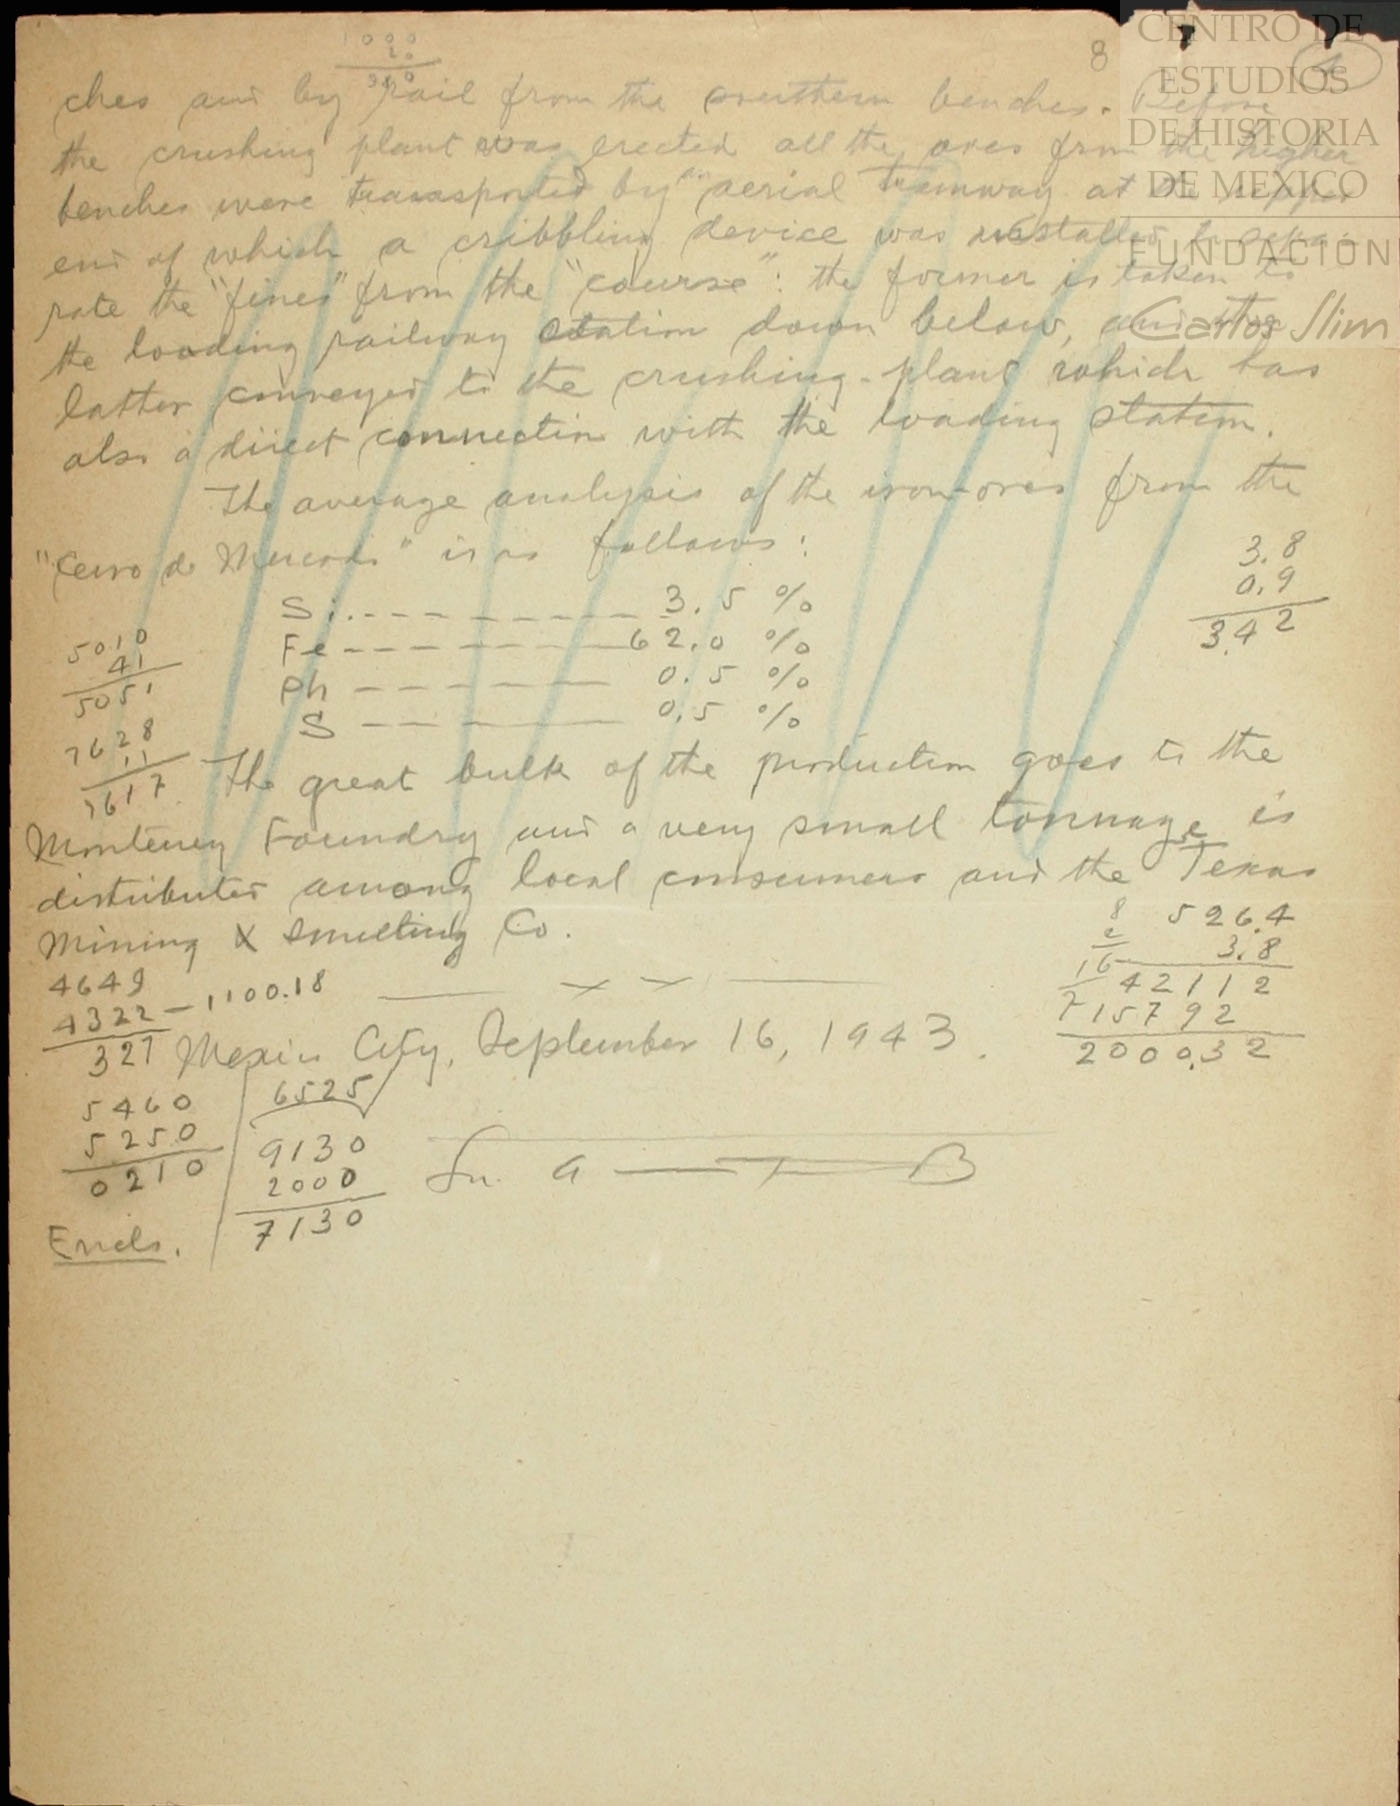 1000
20
8
CENTRO DE
ESTUDIOS
DE HISTORIA
DE MEXICO
FUNDACION
Carlos Slim
ches and by rail from the southern benches. Before
the crushing plant was erected all the ores from the higher
benches were transported by an aerial tramway at the upper
end of which a cribbling device was installed to sepa-
rate the "fines" from the "course": the former is taken to
the loading railway station down below, and the
latter conveyed to the crushing-plant which has
also a direct connection with the loading station.
The average analysis of the iron-ores from the
"Cerro de Mercado" is as follows:
3.8
0.9
3.42
Si. 3.5 %
Fe 62.0 %
Ph 0.5 %
S 0.5 %
5010
41
5051
7628
11
7617
The great bulk of the production goes to the
Monterrey Foundry and a very small tonnage is
distributed among local consumers and the Texas
Mining & Smelting Co.
8
2
16
526.4
3.8
42112
15792
2000.32
4649
4322 — 1100.18
327
Mexico City, September 16, 1943.
5460
5250
0210
6525
9130
2000
7130
Encls.